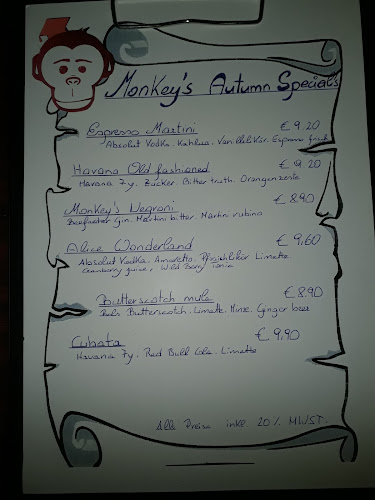 Monkey's Autumn Specials
Espresso Martini € 9,20
Absolut Vodka. Kahlua. Vanillelikör. Espresso frisch
Havana Old fashioned € 9,20
Havana 7y. Zucker. Bitter truth. Orangenzeste
Monkey's Negroni € 8,90
Beefeater Gin. Martini bitter. Martini rubino
Alice Wonderland € 9,60
Absolut Vodka. Amaretto. Pfirsichlikör Limette
Cranberry juice, Wild Berry Tonic
Butterscotch mule € 8,90
Butterscotch. Limette. Minze. Ginger beer
Cubata € 9,90
Havana 7y. Red Bull Cola. Limette
Alle Preise inkl. 20% MWST.